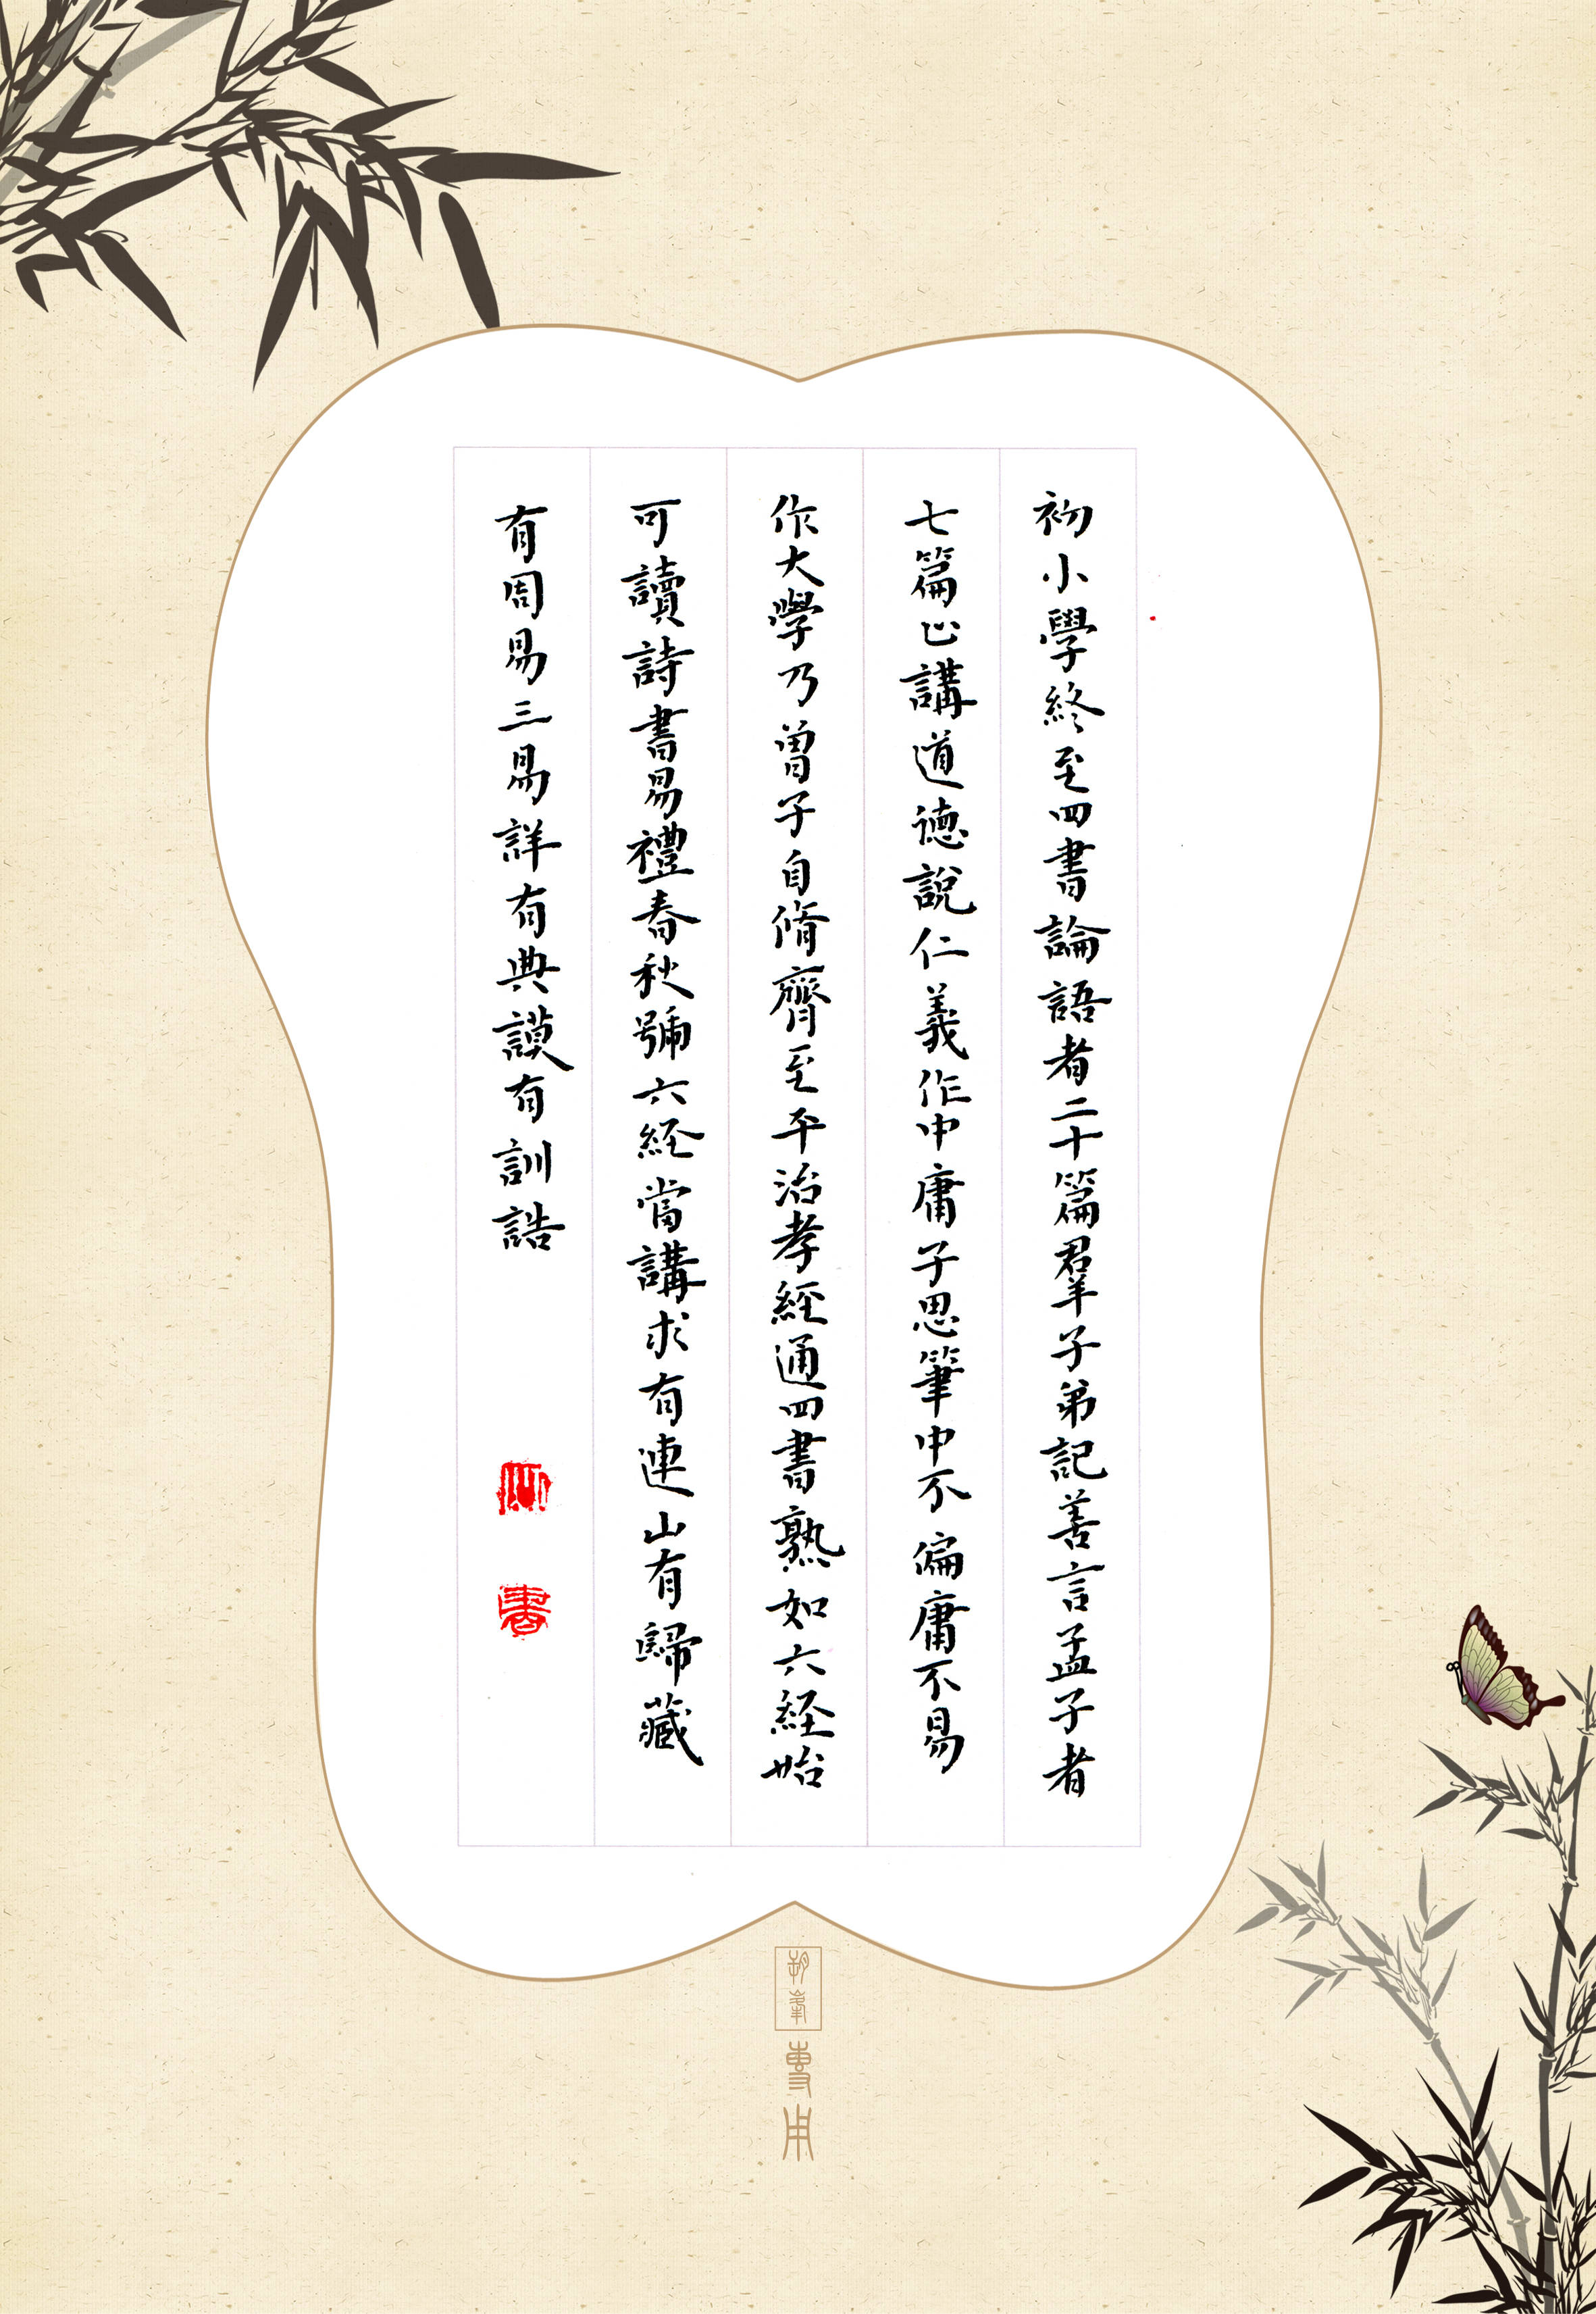 初小學終至四書論語者二十篇羣子弟記善言孟子者
七篇止講道德說仁義作中庸子思筆中不偏庸不易
作大學乃曾子自脩齊至平治孝經通四書熟如六經始
可讀詩書易禮春秋號六經當講求有連山有歸藏
有周易三易詳有典謨有訓誥
書
專用